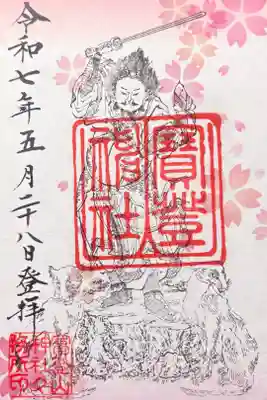 令和七年五月二十八日登拝
寶登山
神社